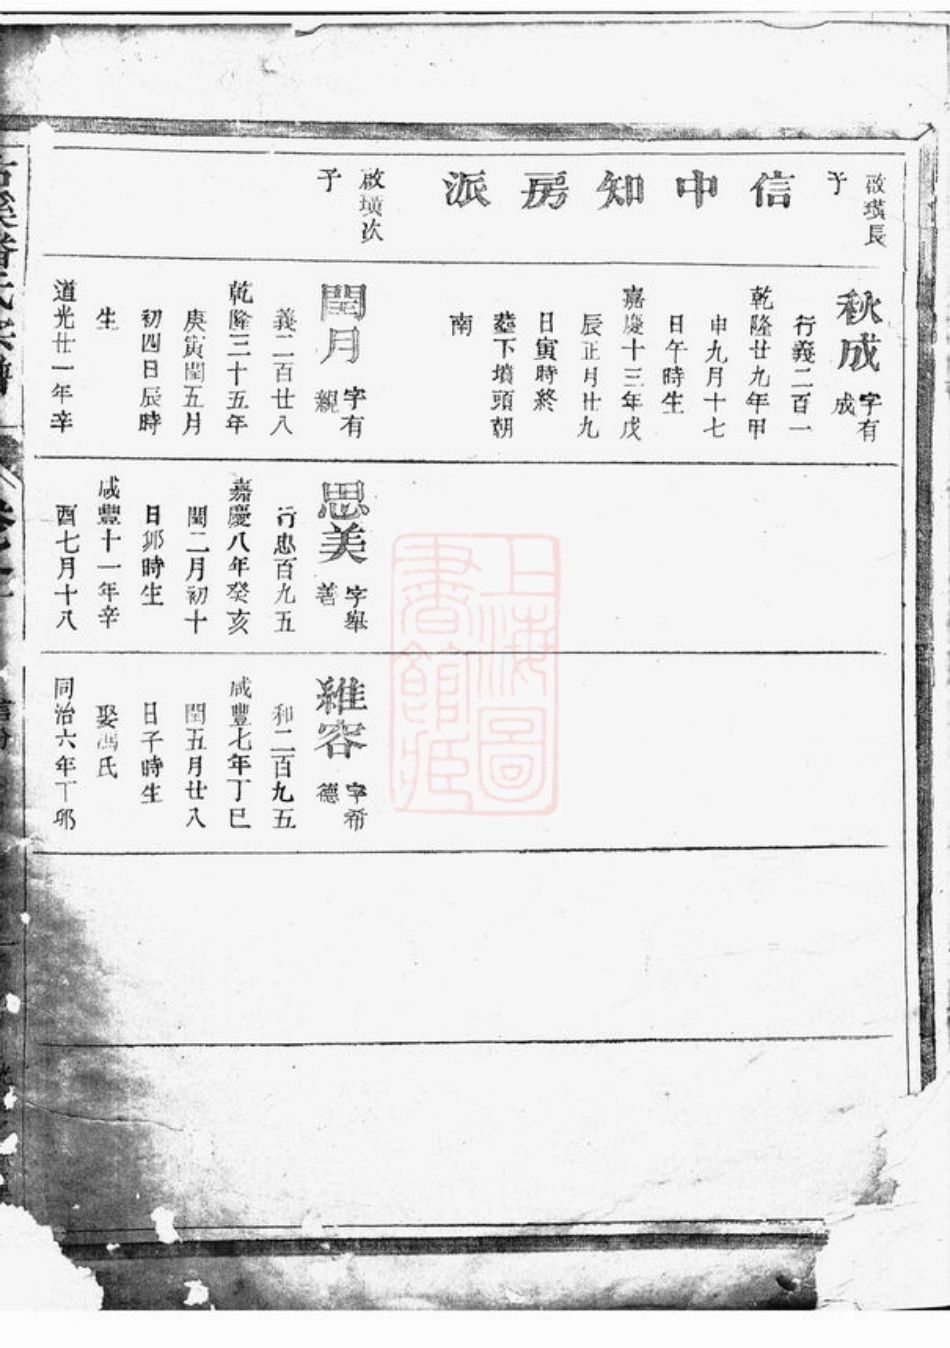 啟璜長
子
信中知房派
啟璜次
子
秋成
字有
成
行義二百一
乾隆廿九年甲
申九月十七
日午時生
嘉慶十三年戊
辰正月廿九
日寅時終
葬下墳頭朝
南
閏月
字有
親
義二百廿八
乾隆三十五年
庚寅閏五月
初四日辰時
生
道光廿一年辛
思美
字舉
善
行忠百九五
嘉慶八年癸亥
閏二月初十
日卯時生
咸豐十一年辛
酉七月十八
維容
字希
德
和二百九五
咸豐七年丁巳
閏五月廿八
日子時生
娶馮氏
同治六年丁卯
上海圖
書館藏